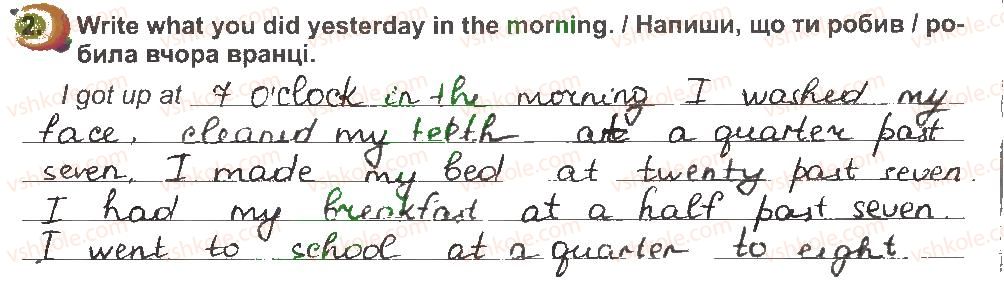 2. Write what you did yesterday in the morning. / Напиши, що ти робив / ро-
била вчора вранці.
I got up at 7 o'clock in the morning I washed my
face, cleaned my teeth at a quarter past
seven. I made my bed at twenty past seven.
I had my breakfast at a half past seven.
I went to school at a quarter to eight.